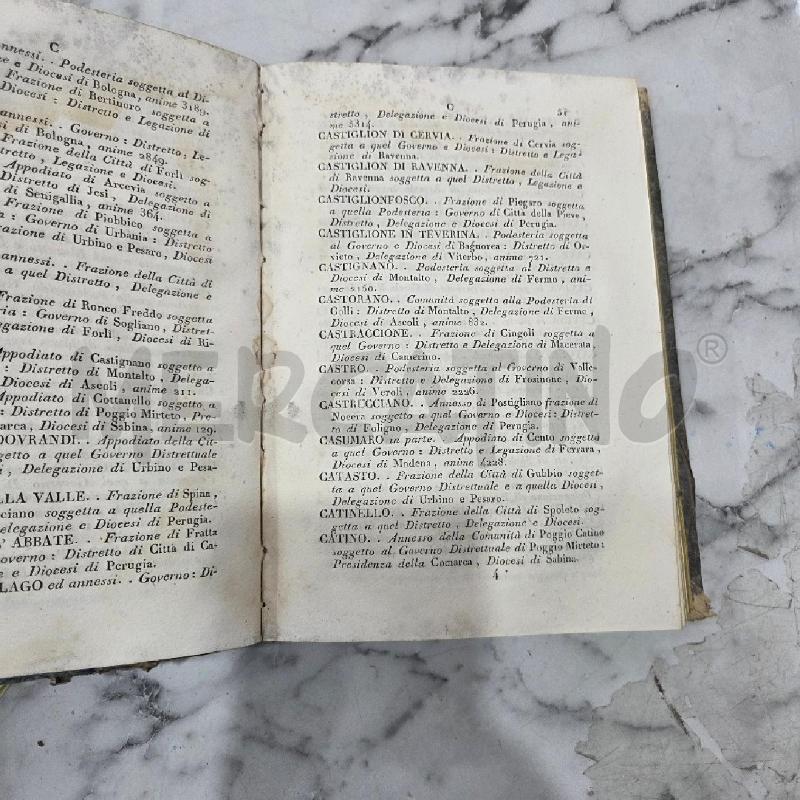 C
annessi. . Podesteria soggetta al Di-
e Diocesi di Bologna, anime 3189.
Frazione di Bertinoro soggetta a
Diocesi: Distretto e Legazione di
annessi. . Governo: Distretto, Le-
di Bologna, anime 2849.
Frazione della Città di Forlì sog-
Legazione e Diocesi.
Appodiato di Arcevia soggetto a
Distretto di Jesi, Delegazione di
di Senigallia, anime 364.
Frazione di Piobbico soggetta a
Governo di Urbania: Distretto
di Urbino e Pesaro, Diocesi
annessi. . Frazione della Città di
a quel Distretto, Delegazione e
Frazione di Ronco Freddo soggetta
Governo di Sogliano, Distret-
di Forlì, Diocesi di Ri-
Appodiato di Castignano soggetto a
di Montalto, Delega-
Diocesi di Ascoli, anime 211.
Appodiato di Cottanello soggetto a
: Distretto di Poggio Mirteto, Pre-
Diocesi di Sabina, anime 129.
DOVRANDI. . Appodiato della Cit-
a quel Governo Distrettuale
, Delegazione di Urbino e Pesa-
LLA VALLE. . Frazione di Spina,
soggetta a quella Podeste-
Delegazione e Diocesi di Perugia.
L' ABBATE. . Frazione di Fratta
Governo: Distretto di Città di Ca-
e Diocesi di Perugia.
LAGO ed annessi. . Governo: Di-
C 51
stretto, Delegazione e Diocesi di Perugia, ani-
me 5314.
CASTIGLION DI CERVIA. . Frazione di Cervia sog-
getta a quel Governo e Diocesi: Distretto e Lega-
zione di Ravenna.
CASTIGLION DI RAVENNA. . Frazione della Città
di Ravenna soggetta a quel Distretto, Legazione e
Diocesi.
CASTIGLIONFOSCO. . Frazione di Piegaro soggetta
a quella Podesteria: Governo di Città della Pieve,
Distretto, Delegazione e Diocesi di Perugia.
CASTIGLIONE IN TEVERINA. . Podesteria soggetta
al Governo e Diocesi di Bagnorea: Distretto di Or-
vieto, Delegazione di Viterbo, anime 721.
CASTIGNANO. . Podesteria soggetta al Distretto e
Diocesi di Montalto, Delegazione di Fermo, ani-
me 2160.
CASTORANO. . Comunità soggetta alla Podesteria di
Colli: Distretto di Montalto, Delegazione di Fermo,
Diocesi di Ascoli, anime 832.
CASTRACCIONE. . Frazione di Cingoli soggetta a
quel Governo: Distretto e Delegazione di Macerata,
Diocesi di Camerino.
CASTRO. . Podesteria soggetta al Governo di Valle-
corsa: Distretto e Delegazione di Frosinone, Dio-
cesi di Veroli, anime 2226.
CASTRUCCIANO. . Annesso di Postigliano frazione di
Nocera soggetto a quel Governo e Diocesi: Distret-
to di Foligno, Delegazione di Perugia.
CASUMARO in parte. . Appodiato di Cento soggetto
a quel Governo: Distretto e Legazione di Ferrara,
Diocesi di Modena, anime 4228.
CATASTO. . Frazione della Città di Gubbio sogget-
ta a quel Governo Distrettuale e a quella Diocesi,
Delegazione di Urbino e Pesaro.
CATINELLO. . Frazione della Città di Spoleto sog-
getta a quel Distretto, Delegazione e Diocesi.
CATINO. . Annesso della Comunità di Poggio Catino
soggetto al Governo Distrettuale di Poggio Mirteto:
Presidenza della Comarca, Diocesi di Sabina.
4